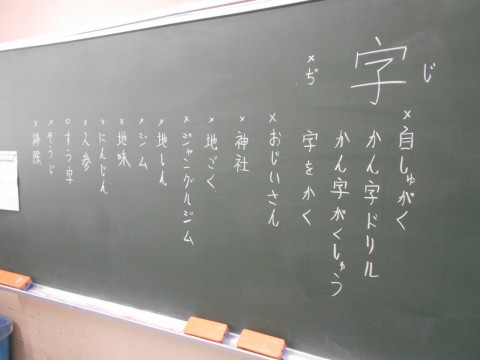 字 じ
×ぢ
×自しゅがく
かん字ドリル
かん字がくしゅう
字をかく
×おじいさん
×神社
×地ごく
×ジャングルジム
×地しん
×ジム
×地味
×にんじん
×人参
○すう字
×そうじ
×掃除